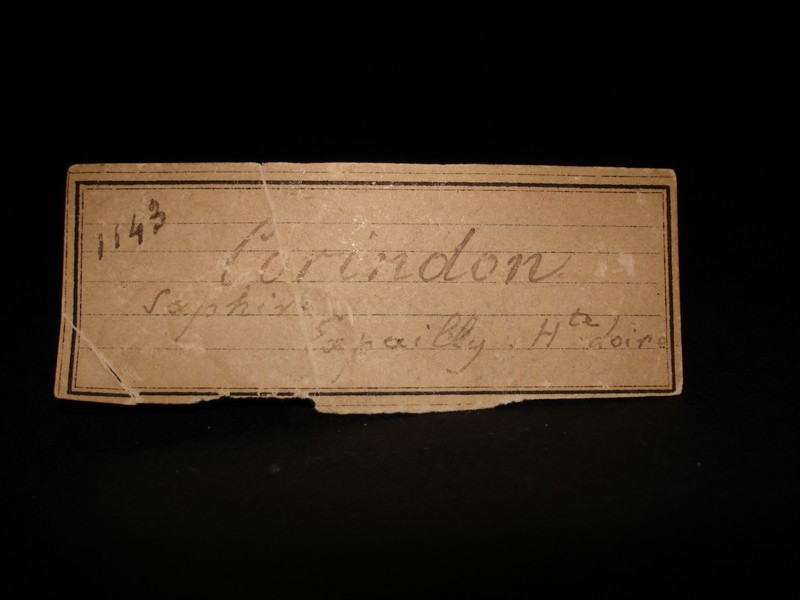 1143
Corindon
Saphire
Expailly. Hte Loire